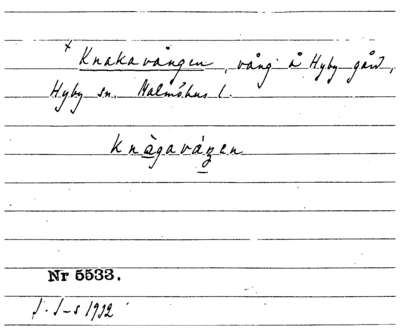 x Knakavången, vång å Hyby gård,
Hyby sn. Malmöhus l.
Knàgaváŋen
Nr 5533.
1932